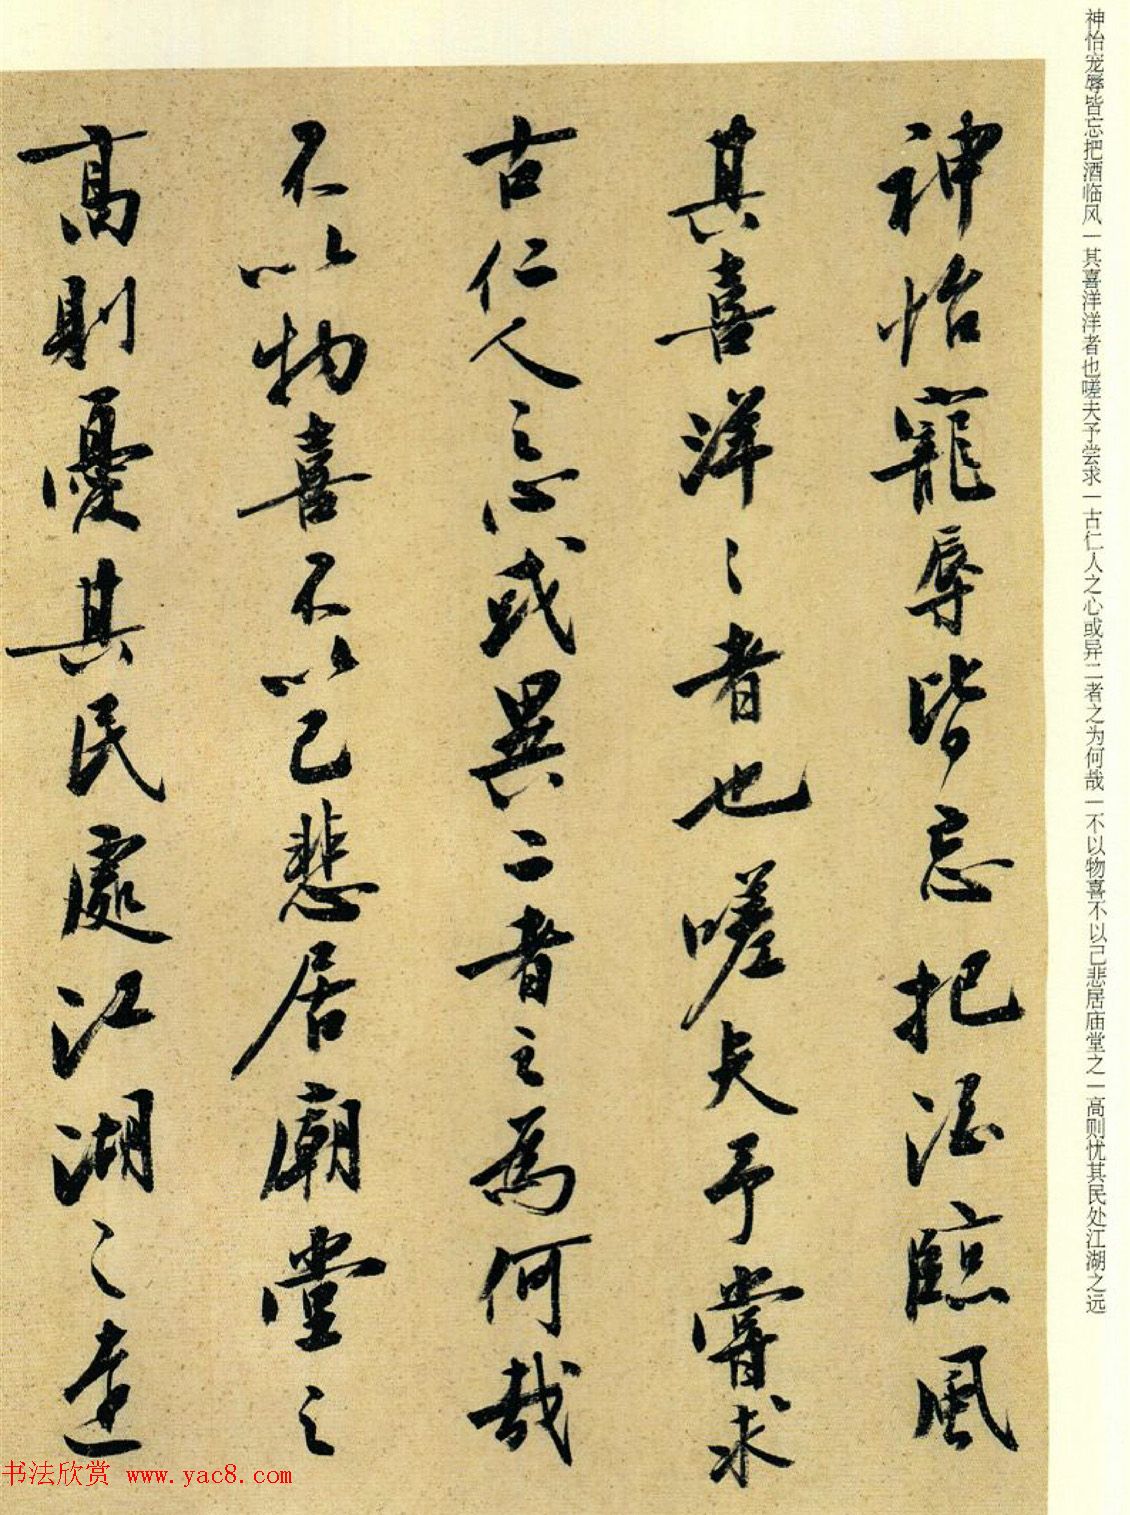 神怡宠辱皆忘把酒临风一其喜洋洋者也嗟夫予尝求一古仁人之心或异二者之为何哉一不以物喜不以己悲居庙堂之一高则忧其民处江湖之远
神怡寵辱皆忘把酒臨風
其喜洋〻者也嗟夫予嘗求
古仁人之心或異二者之為何哉
不以物喜不以己悲居廟堂之
高則憂其民處江湖之遠
书法欣赏 www.yac8.com